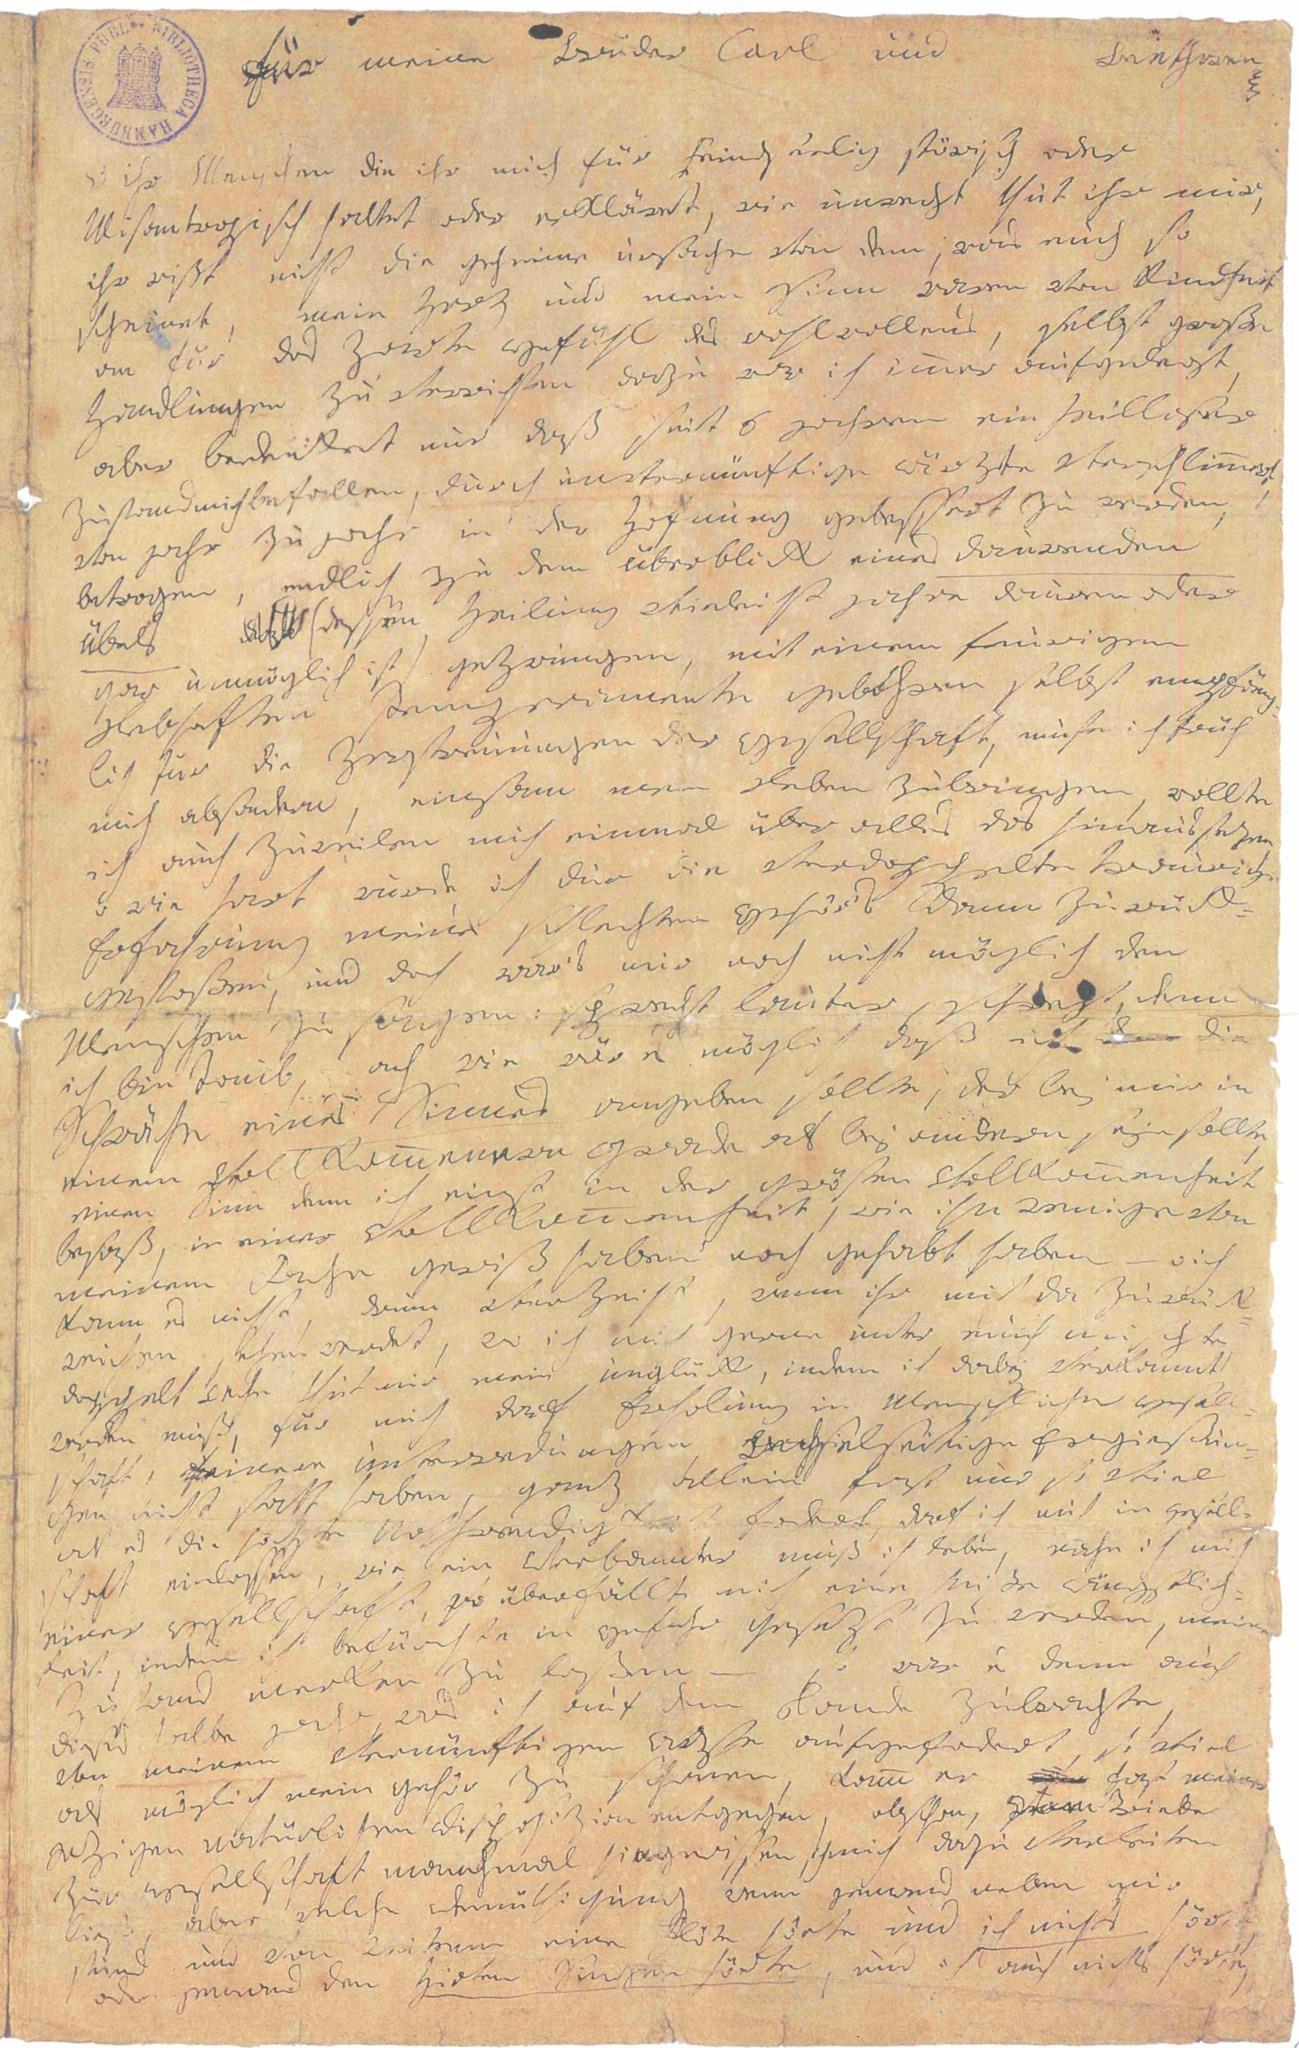 BIBLIOTHECA HAMBURGENSIS PUBL.
für meine Brüder Carl und Beethowen
o ihr Menschen die ihr mich für feindseelig störisch oder
Misantropisch haltet oder erkläret, wie unrecht thut ihr mir,
ihr wißt nicht die geheime ursache von dem, was euch so
scheinet, mein Herz und mein Sinn waren von Kindheit
an für das Zarte gefühl des wohlwollens, selbst große
Handlungen zu verrichten dazu war ich imer aufgelegt,
aber bedenket nur daß seit 6 jahren ein heilloser
Zustand mich befallen, durch unvernünftige ärzte verschlimert,
von jahr zu jahr in der Hofnung gebessert zu werden,
betrogen, endlich zu dem überblick eines daurenden
Übels (dessen Heilung vieleicht jahre dauren oder
gar unmöglich ist) gezwungen, mit einem feurigen
Lebhaften Temperamente gebohren selbst empfäng-
lich für die Zerstreuungen der gesellschaft, muste ich früh
mich absondern, einsam mein Leben zubringen, wollte
ich auch zuweilen mich einmal über alles das hinaussezen
o wie hart wurde ich dur die verdoppelte traurige
Erfahrung meines schlechten gehör's dann zurück-
gestoßen, und doch war's mir noch nicht möglich den
Menschen zu sagen: sprecht lauter, schreyt, denn
ich bin taub, ach wie wär es möglich daß ich die
Schwäche eines Sinnes angeben sollte, der bej mir in
einem Vollkomenern grade als bej andern seyn sollte,
einen Sinn denn ich einst in der grösten Vollkomenheit
besaß, in einer Vollkomenheit, wie ihn wenige von
meinem Fache gewiß haben noch gehabt haben — o ich
kann es nicht, drum verzeiht, wenn ihr mich da zurück-
weichen sehen werdet, wo ich mich gerne unter euch mischte
doppelt wehe thut mir mein unglück, indem ich dabej verkannt
werden muß, für mich darf Erholung in Menschlicher gesell-
schaft, feinere unterredungen wechselseitige Ergießun-
gen nicht statt haben, ganz allein fast nur so viel
als es die höchste Nothwendigkeit fodert, darf ich mich in gesell-
schaft einlassen, wie ein Verbannter muß ich leben, nahe ich mich
einer gesellschaft, so überfällt mich eine heiße ängstlich-
keit, indem ich befürchte in gefahr gesetzt zu werden, meinen
Zustand merken zu laßen — so war es denn auch
dieses halbe jahr, was ich auf dem Lande zubrachte,
von meinem vernünftigen Arzte aufgefodert, so viel
als möglich mein gehör zu schonen, kamm er fast meiner
jetzigen natürlichen Disposizion entgegen, obschon, vom Triebe
zur gesellschaft manchmal hingerissen, ich mich dazu verleiten
ließ, aber welche demüthigung wenn jemand neben mir
stund und von weitem eine Flöte hörte und ich nichts hörte
oder jemand den Hirten Singen hörte, und ich auch nichts hörte,